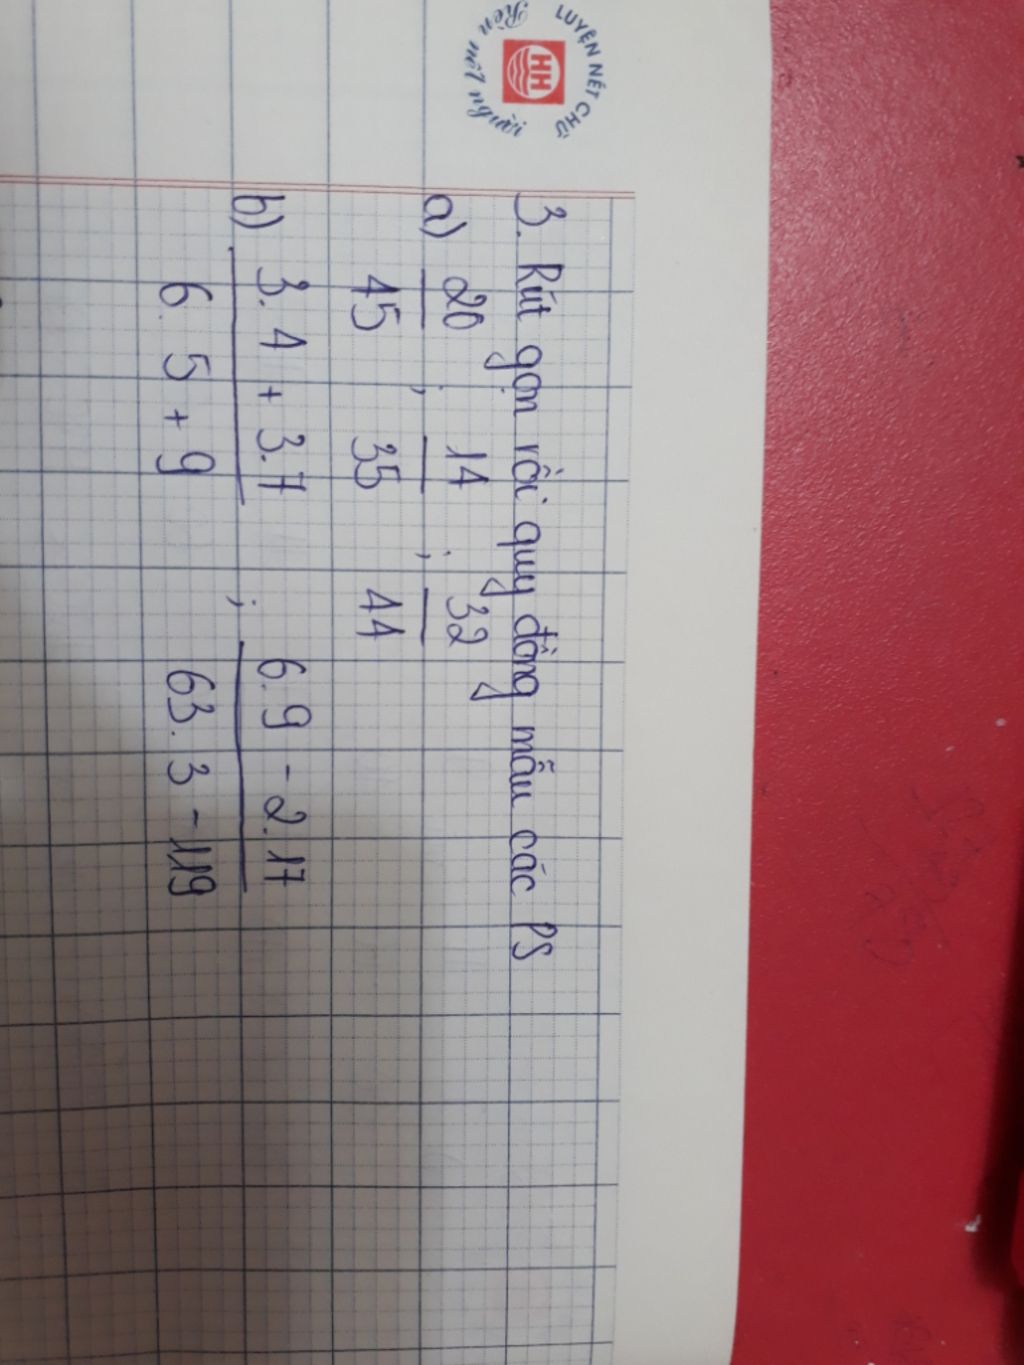 LUYỆN NÉT CHỮ
HH
Rèn nết người
3. Rút gọn rồi quy đồng mẫu các PS
a) 20/45 ; 14/35 ; 32/44
b) 3.4 + 3.7 / 6.5 + 9 ; 6.9 - 2.17 / 63.3 - 119